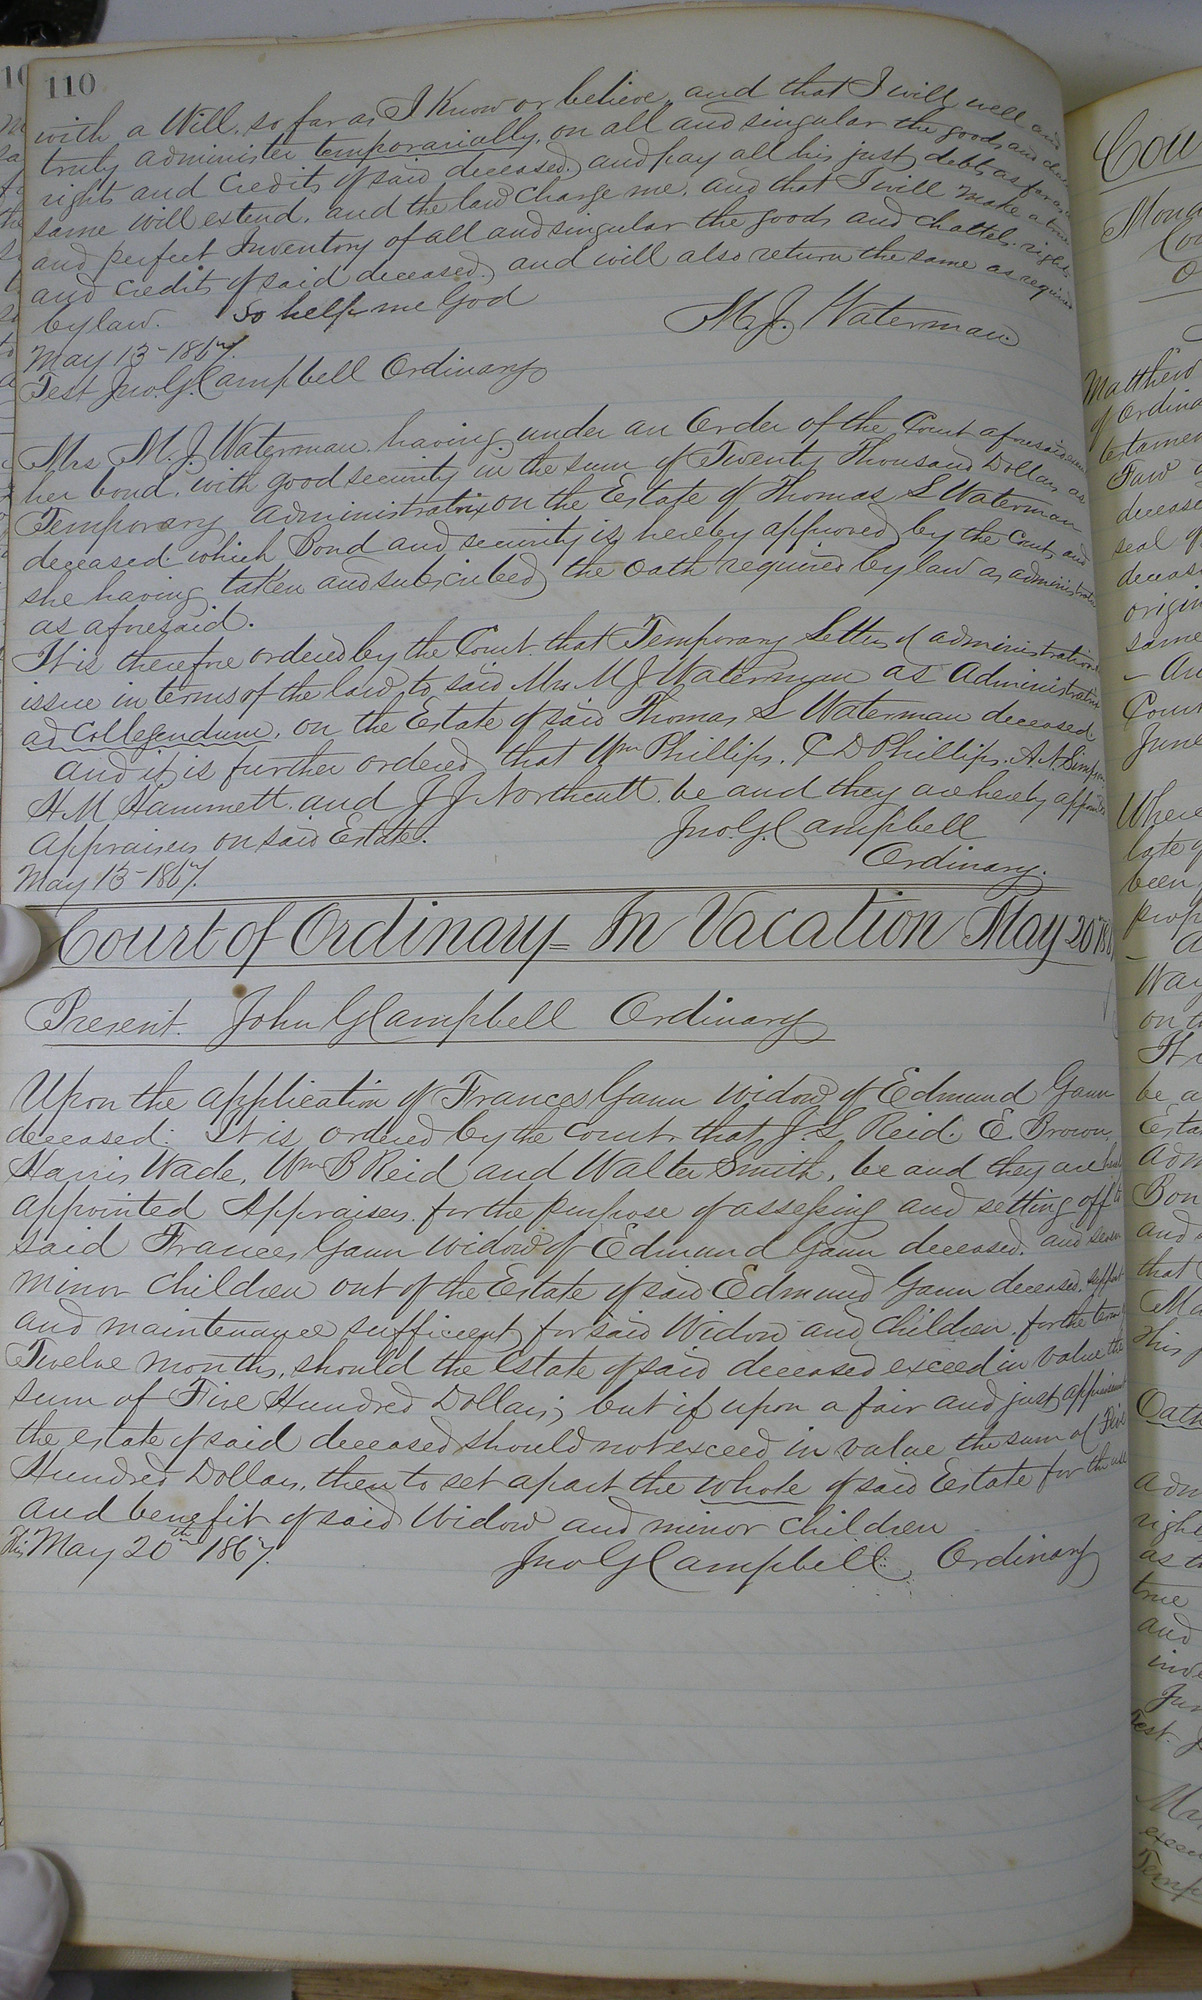 110
with a Will, so far as I Know or believe, and that I will well and
truly administer temporarially, on all and singular the goods and
rights and Credits of said deceased, and pay all his just debts, as far as
same will extend, and the law Charge me, and that I will make a true
and perfect Inventory of all and singular the goods and chattels, rights
and credits of said deceased, and will also return the same as required
by law. So help me God
M. J. Waterman.
May 13 - 1867.
Test Jno. G. Campbell Ordinary
Mrs M. J. Waterman having under an Order of the Court aforesaid
her bond, with good security in the sum of Twenty Thousand Dollars as
Temporary administratrix on the Estate of Thomas S Waterman
deceased which Bond and security is hereby approved by the Court, and
she having taken and subscribed the oath required by law as administratrix
as aforesaid.
It is therefore ordered by the Court that Temporary Letters of administration
issue in terms of the law to said Mrs M J Waterman as Administratrix
ad Collegendum, on the Estate of said Thomas S Waterman deceased
and it is further ordered that Wm Phillips, C D Phillips, A. N. Simpson
H. M Hammett and J J Northcutt be and they are hereby appointed
appraisers on said Estate.
Jno. G. Campbell
Ordinary.
May 13 - 1867.
Court of Ordinary = In Vacation May 20th
Present. John G Campbell Ordinary
Upon the application of Frances Gann widow of Edmund Gann
deceased: It is ordered by the court that J. L Reid. E Brown,
Harris Wade, Wm B Reid and Walter Smith, be and they are hereby
appointed Appraisers for the purpose of assessing and setting off to
said Frances Gann widow of Edmund Gann deceased, and seven
minor children out of the Estate of said Edmund Gann deceased, support
and maintenance sufficient for said Widow and children, for the term
Twelve months, should the Estate of said deceased exceed in value the
sum of Five Hundred Dollars; but if upon a fair and just appraisement
the estate of said deceased should not exceed in value the sum of Five
Hundred Dollars, then to set apart the whole of said Estate for the use
and benefit of said Widow and minor children
This May 20th 1867.
Jno G Campbell Ordinary